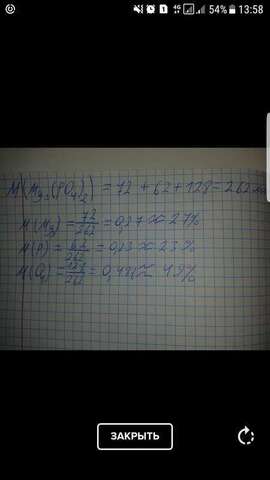 54% 13:58
M(Mg₃(PO₄)₂) = 72 + 62 + 128 = 262
M(Mg) = 72/262 = 0,27 ≈ 27%
M(P) = 62/262 = 0,23 ≈ 23%
= 0,48
ЗАКРЫТЬ